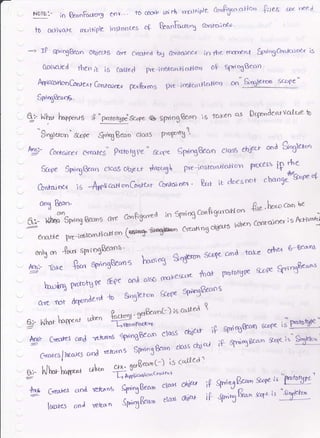 NOTE:- in BeanFactory env... to work with multiple Configuration files we need
to activate multiple instances of BeanFactory container.
→ If springBean objects are created by container in the moment SpringContainer is
activated then it is called pre-instantiation of springBean.
ApplicationContext Container performs pre-instantiation on "Singleton scope"
SpringBeans.
Q:- What happens if "prototype" Scope springBean is taken as Dependent value to
"Singleton" scope SpringBean class property?
Ans:- Container creates "Prototype" scope SpringBean class object and Singleton
Scope SpringBean class object through pre-instantiation process if the
Container is ApplicationContext Container. But it does not change scope of
any Bean.
Q:- When SpringBeans are Configured in Spring Configuration file. how can be
enable pre-instantiation on creating objects when Container is Activated
only on four springBeans.
Ans:- Take four SpringBeans having Singleton Scope and take other 6-Beans
having prototype scope and also make sure that prototype scope SpringBeans
are not dependent to Singleton Scope SpringBeans
Q:- What happens when factory.getBean(-) is called?
BeanFactory
Ans:- Creates and returns SpringBean class object if springBean scope is "prototype"
Creates/locates and returns SpringBean class object if SpringBean scope is Singleton
Q:- What happens when ctx.getBean(-) is called?
ApplicationContext
Ans Creates and returns SpringBean class object if SpringBean Scope is "prototype"
locates and return SpringBean class object if SpringBean scope is "Singleton"